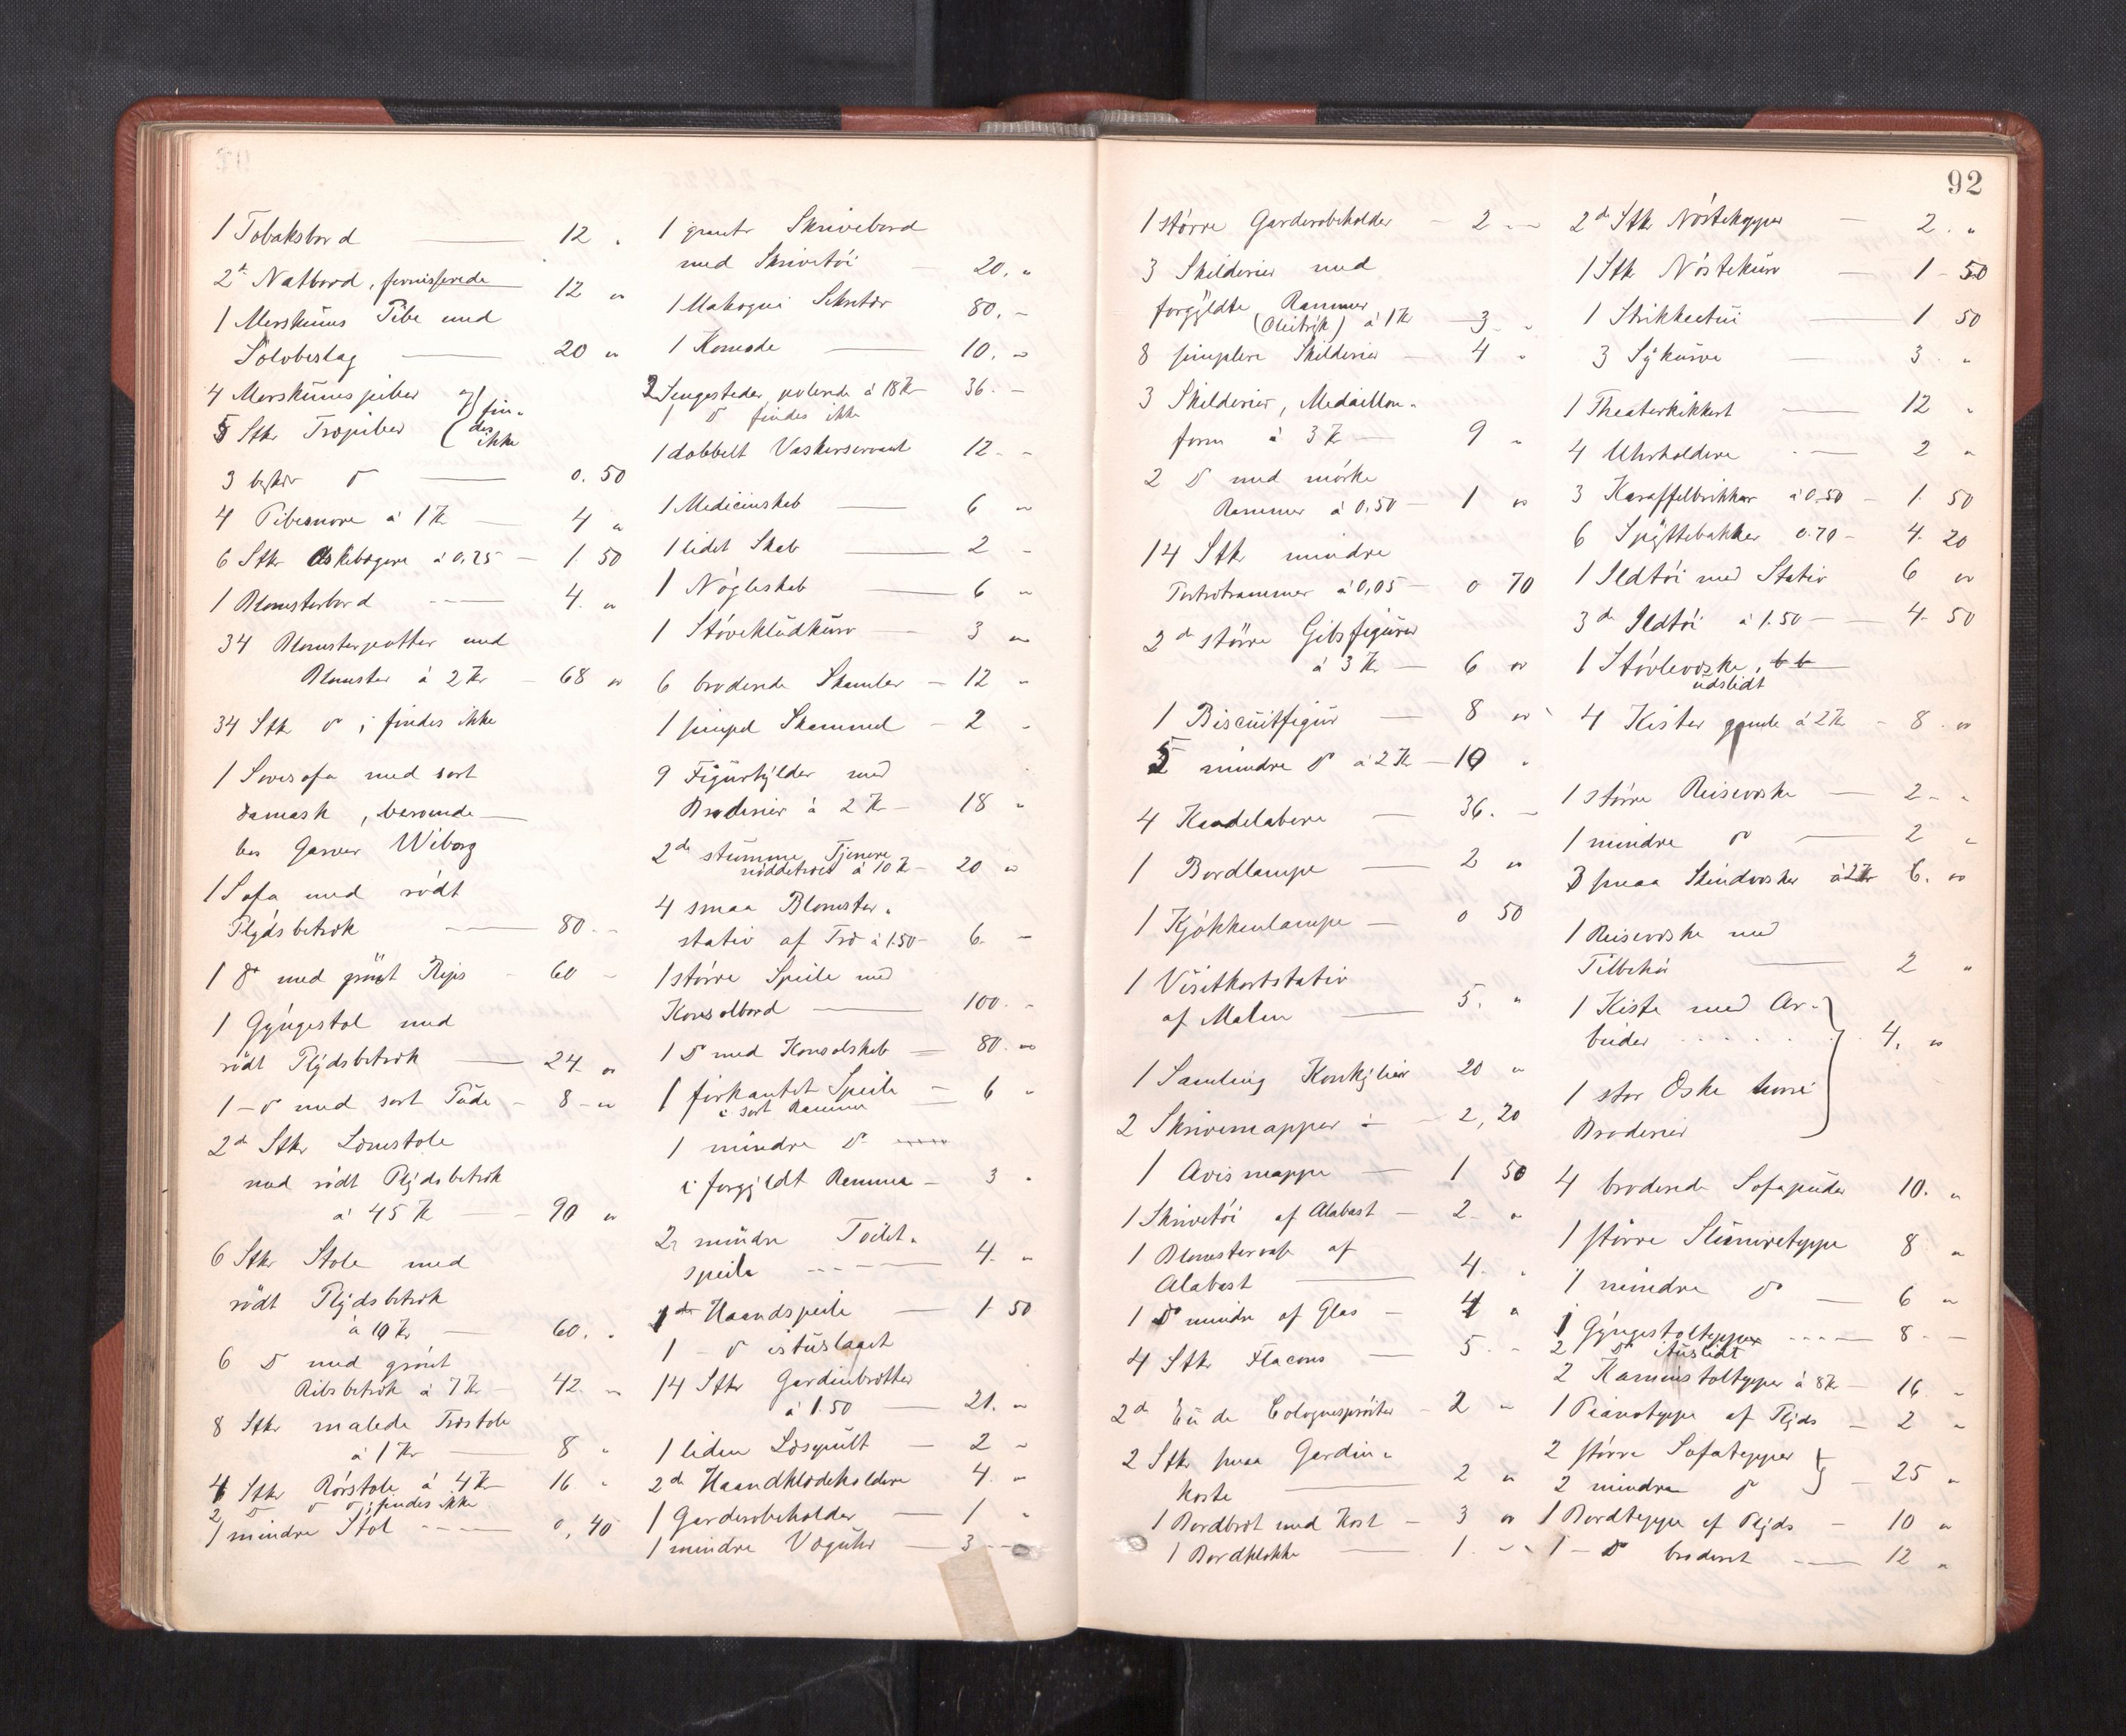 1 Tobaksbord 12 "
2de Natbord, fernisserede 12 "
1 Merskums Pibe med
Sølvbeslag 20 "
4 Merskumspiber } fin-
5 Stkr Træpiber des ikke
3 0.50
4 Pibesnore á 1 Kr 4 "
6 Stkr Askebægere á 0,25 1. 50
1 Blomsterbord 4. "
34 Blomsterpotter med
Blomster á 2 Kr 68 "
34 Stk do ; findes ikke
1 Sovesofa med sort
Damask, beroende
hos Garver Wiborg
1 Sofa med rødt
Plydsbetræk 80. -
1 do med grønt Rips 60 -
1 Gyngestol med
rødt Plydsbetræk 24. "
1 - do med sort Pude 8 - "
2de Stkr Lænestole
med rødt Plydsbetræk
á 45 Kr 90 "
6 Stkr Stole med
rødt Plydsbetræk
á 10 Kr 60. "
6 do med grønt
Ribsbetræk á 7 Kr 42. "
8 Stkr malede Træstole
á 1 Kr 8 "
4 Stkr Rørstole á 4 Kr 16 "
2 do do ; findes ikke
1 mindre Stol 0,40
1 Skrivebord
med Skrivetøi 20. "
1 Mahogni Sekretær 80. -
1 Komode 10. "
2 Sengesteder, polerede á 18 Kr 36. -
1 do findes ikke
1 dobbelt Vaskerservant 12. -
1 Medicinskab 6 "
1 lidet Skab 2 -
1 Nøgleskab 6 "
1 Støvekludkurv 3 "
6 broderede Skamler 12 "
1 simpel Skammel 2 -
9 Figurhylder med
Broderier á 2 Kr 18 "
2de stumme Tjenere
nøddetræes á 10 Kr 20 "
4 smaa Blomster-
stativ af Træ á 1.50 6. -
1 større Speile med
Konsolbord 100. -
1 do med Konsolskab 80. "
1 firkantet Speile 6 "
i sort Ramme
1 mindre do
i forgyldt Ramme 3 "
2 mindre Toilet-
speile 4. "
1 Haandspeile 1. 50
1 - do istuslaget
14 Stkr Gardinbrætter
á 1.50 21. "
1 liden Læsepult 2 "
2de Haandklædeholdere 4. "
1 Garderobeholder 1 "
1 mindre Væguhr 3 -
92
1 større Garderobeholder 2 "
3 Skilderier med
forgyldte Rammer
(Oletryk) á 1 Kr 3. "
8 simplere Skilderier 4 "
3 Skilderier, Medaillon-
form á 3 Kr 9 "
2 do med mørke
Rammer á 0,50 1 "
14 Stk mindre
Portrætrammer á 0,05 0 70
2de større Gibsfigurer
á 3 Kr 6 "
1 Biscuitfigur 8 "
5 mindre do á 2 Kr 10 "
4 Kandelabere 36. -
1 Bordlampe 2 "
1 Kjøkkenlampe 0 50
1 Visitkortstativ
af Malm 5. "
1 Samling Konkylier 20 "
2 Skrivemapper 2,20
1 Avismappe 1 50
1 Skrivetøi af Alabast 2. "
1 Blomstervase af
Alabast 4. "
1 do mindre af Glas 4 "
4 Stkr Flacons 5. -
2de Eu de Colognesprøiter 2 "
2 Stkr smaa Gardin-
koste 2 "
1 Bordbræt med Kost 3 "
1 Bordklokke 1. "
2de Stk Nøstekopper 2. "
1 Stk Nøstekurv 1 - 50
1 Strikkeetui 1 50
3 Sykurve 3 "
1 Theaterkikkert 12 "
4 Uhrholdere 2 "
3 Karaffelbrikker á 0.50 1. 50
6 Spyttebakker 0.70 4. 20
1 Ildtøi med Stativ 6 "
3de Ildtøi á 1.50 4. 50
1 Støvlevæske,
udslidt
4 Kister gamle á 2 Kr 8. "
1 større Reisevæske 2 - "
1 mindre do 2 "
3 smaa Skindvæsker á 2 Kr 6. "
1 Reisevæske med
Tilbehør 2 "
1 Kiste med Ar-
beider 4. "
1 stor Æske
Broderier
4 broderede Sofapuder 10. "
1 større Slumretæppe 8 "
1 mindre do 6 "
1 Gyngestoltæppe 8. -
2 do ituslidt
2 Kaminstoltæpper á 8 Kr 16 "
1 Pianotæppe af Plyds 2 "
2 større Sofatæpper }
2 mindre do 25 "
1 Bordtæppe af Plyds 10 "
1 - do broderet 12 "